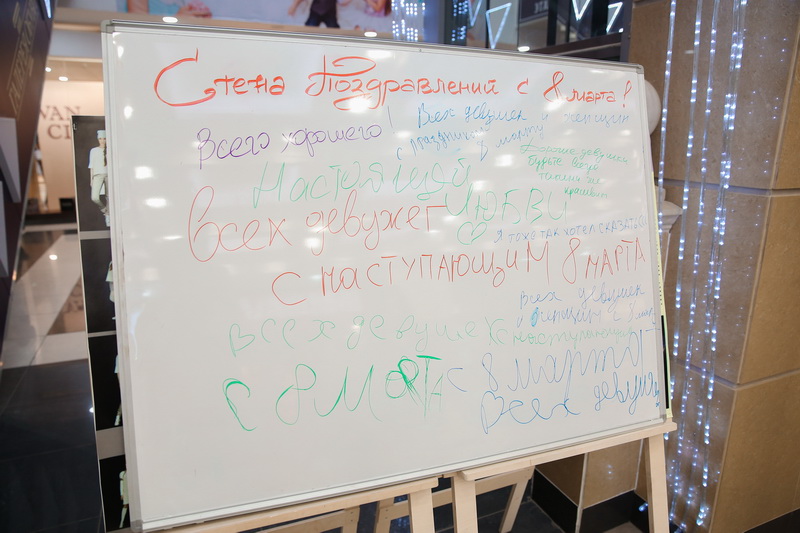 Стена Поздравлений с 8 марта!
Всего хорошего!
Всех девушек и женщин
с праздником
8 марта
будьте всегда
такими же
Настоящей
Любви
всех девужег
Я тоже так хотел сказать
с наступающим 8 МАРТА
всех девушек
всех девушек с наступающим
с 8 МАРТА
с 8 марта
Всех девуш
VAN